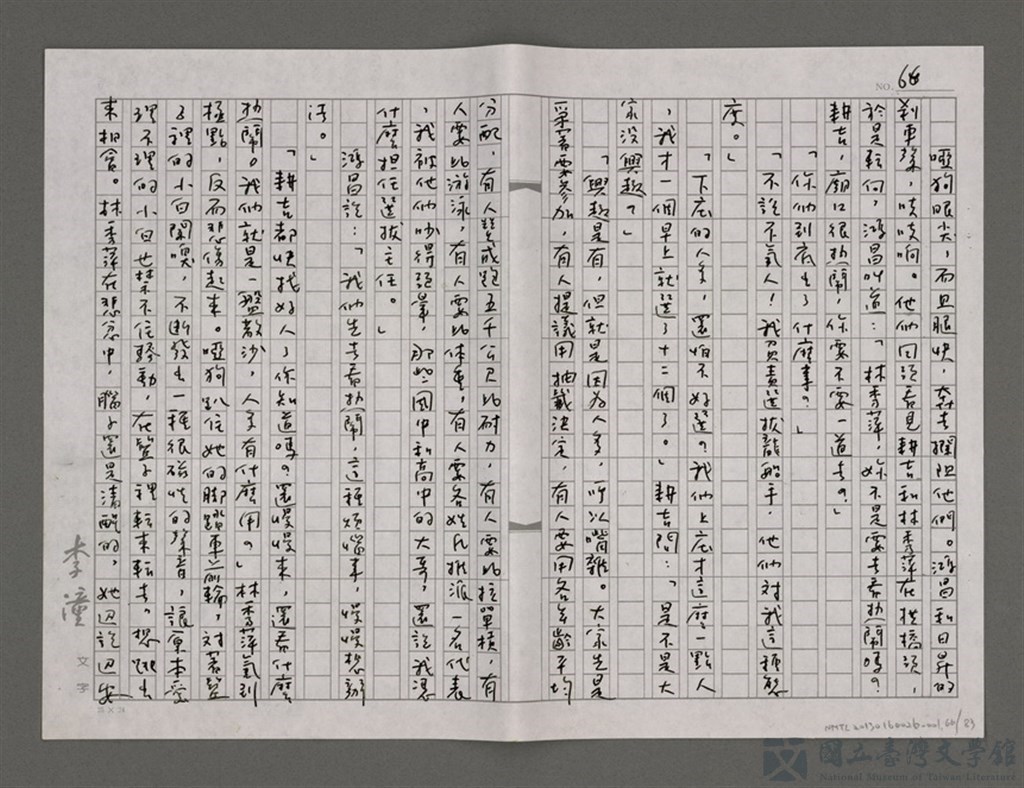 NO. 64
啞狗眼尖，而且腿快，奔去攔阻他們。鴻昌和日昇的
剎車聲，吱吱响。他們回頭看見耕吉和林秀萍在拱橋頭，
於是転向，鴻昌叫道：「林秀萍，妳不是要去看热鬧嗎？
耕吉，廟口很热鬧，你要不要一道去？」
「你们到底出了什麼事？」
「不說不氣人！我負責選拔龍船手，他们对我這種態
度。」
「下庄的人多，還怕不好選？我们上庄才這麼一點人
，我才一個早上就選了十二個了。」耕吉問：「是不是大
家没興趣？」
「興趣是有，但就是因為人多，所以嘴雜。大家先是
采富要参加，有人提議用抽籤決定，有人要用各年齡平均
分配，有人贊成跑五千公尺比耐力，有人要比拉單槓，有
人要比游泳，有人要比体重，有人要各姓氏推派一名代表
，我被他们吵得頭暈，那些国中和高中的大哥，還說我憑
什麼担任選拔主任。」
鴻昌說：「我们先去看热鬧，這種煩惱事，慢慢想辦
法。」
「耕吉都快找好人了你知道嗎？還慢慢來，還看什麼
热鬧。我们就是一盤散沙，人多有什麼用？」林秀萍氣到
極點，反而悲傷起來。啞狗趴住她的脚踏車前輪，对著籃
子裡的小白聞嗅，不斷發出一種很磁性的聲音，讓原本愛
理不理的小白也禁不住騷動，在籃子裡転来転去，想跳出
来相會。林秀萍在悲忿中，腦子還是清醒的，她边說边安
李潼
文字
NMTL20130160026-001.64/83
國立臺灣文學館
National Museum of Taiwan Literature